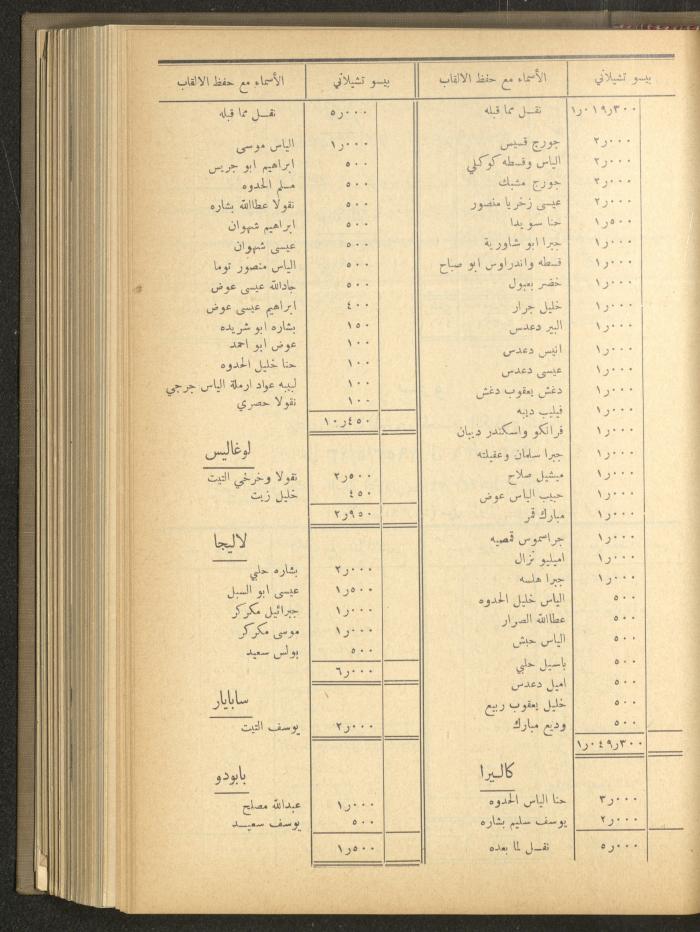 الأسماء مع حفظ الالقاب بيسو تشيلاني
نقل مما قبله ٣٠٠ر٠١٩ر١
جورج قسيس ٠٠٠ر٢
الياس وقسطه كوكلي ٠٠٠ر٢
جورج مشبك ٠٠٠ر٢
عيسى زخريا منصور ٠٠٠ر٢
حنا سويدا ٥٠٠ر١
جبرا ابو شاورية ٠٠٠ر١
قسطه واندراوس ابو صباح ٠٠٠ر١
خضر بعبول ٠٠٠ر١
خليل جرار ٠٠٠ر١
البير دعدس ٠٠٠ر١
انيس دعدس ٠٠٠ر١
عيسى دعدس ٠٠٠ر١
دغش يعقوب دغش ٠٠٠ر١
فيليب ديبه ٠٠٠ر١
فرانكو واسكندر ديبان ٠٠٠ر١
جبرا سلمان وعقيلته ٠٠٠ر١
ميشيل صلاح ٠٠٠ر١
حبيب الياس عوض ٠٠٠ر١
مبارك قمر ٠٠٠ر١
جراسموس قمصيه ٠٠٠ر١
اميليو نزال ٠٠٠ر١
جبرا هلسه ٠٠٠ر١
الياس خليل الحدوه ٥٠٠
عطاالله الصرار ٥٠٠
الياس حبش ٥٠٠
باسيل حلبي ٥٠٠
اميل دعدس ٥٠٠
خليل يعقوب ربيع ٥٠٠
وديع مبارك ٥٠٠
٣٠٠ر٠٤٩ر١
كاليرا
حنا الياس الحدوه ٠٠٠ر٣
يوسف سليم بشاره ٠٠٠ر٢
نقل لما بعده ٠٠٠ر٥
الأسماء مع حفظ الالقاب بيسو تشيلاني
نقل مما قبله ٠٠٠ر٥
الياس موسى ٠٠٠ر١
ابراهيم ابو جريس ٥٠٠
مسلم الحدوه ٥٠٠
نقولا عطاالله بشاره ٥٠٠
ابراهيم شهوان ٥٠٠
عيسى شهوان ٥٠٠
الياس منصور توما ٥٠٠
جادالله عيسى عوض ٥٠٠
ابراهيم عيسى عوض ٤٠٠
بشاره ابو شريده ١٥٠
عوض ابو احمد ١٠٠
حنا خليل الحدوه ١٠٠
لبيبه عواد ارملة الياس جرجي ١٠٠
نقولا حصري ١٠٠
٤٥٠ر١٠
لوغاليس
نقولا وخرخي التيت ٥٠٠ر٢
خليل زيت ٤٥٠
٩٥٠ر٢
لاليجا
بشاره حلبي ٠٠٠ر٢
عيسى ابو السبل ٥٠٠ر١
جبرائيل مكركر ٠٠٠ر١
موسى مكركر ٠٠٠ر١
بولس سعيد ٥٠٠
٠٠٠ر٦
سابايار
يوسف التيت ٠٠٠ر٢
بابودو
عبدالله مصلح ٠٠٠ر١
يوسف سعيد ٥٠٠
٥٠٠ر١